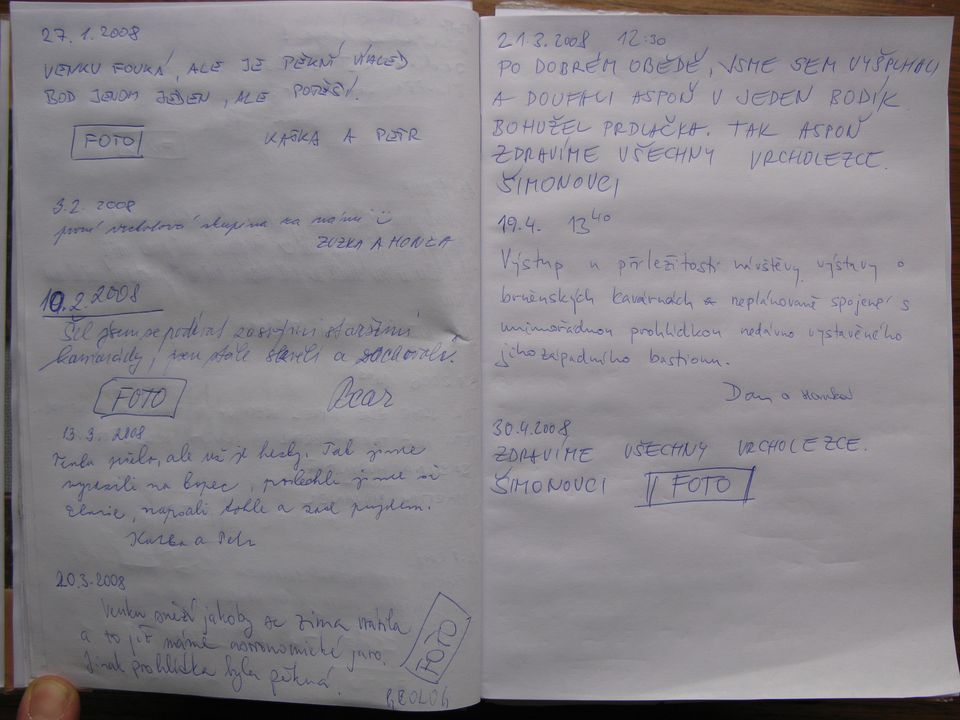 27.1.2008
VENKU FOUKÁ, ALE JE PĚKNÍ VÍHLED
BOD JENOM JEDEN, ALE POTĚŠÍ.
FOTO
KAŤKA A PETR
3.2. 2008
první vrcholová skupina za námi
ZUZKA A HONZA
10.2.2008
Šel jsem se podívat za svými staršími
kamarády, jsou stále skvělí a zachovalí.
FOTO
13.3. 2008
pršelo, ale už je hezky. Tak jsme
vyrazili na kopec, poslechli jsme si
napsali tohle a zase půjdem.
a Petr
20.3.2008
Venku sněží jakoby se zima vrátila
a to již máme astronomické jaro.
Jinak prohlídka byla pěkná.
FOTO
21.3.2008 12:30
PO DOBRÉM OBĚDĚ, JSME SEM VYŠPLHALI
A DOUFALI ASPOŇ V JEDEN BODÍK.
BOHUŽEL PRDLAČKA. TAK ASPOŇ
ZDRAVÍME VŠECHNY VRCHOLEZCE.
ŠIMONOVCI
19.4. 13 40
Výstup u příležitosti návštěvy výstavy o
brněnských kavárnách a neplánovaně spojené s
mimořádnou prohlídkou nedávno vystavěného
jihozápadního bastionu.
Dan a Hanka
30.4.2008
ZDRAVÍME VŠECHNY VRCHOLEZCE.
ŠIMONOVCI
FOTO